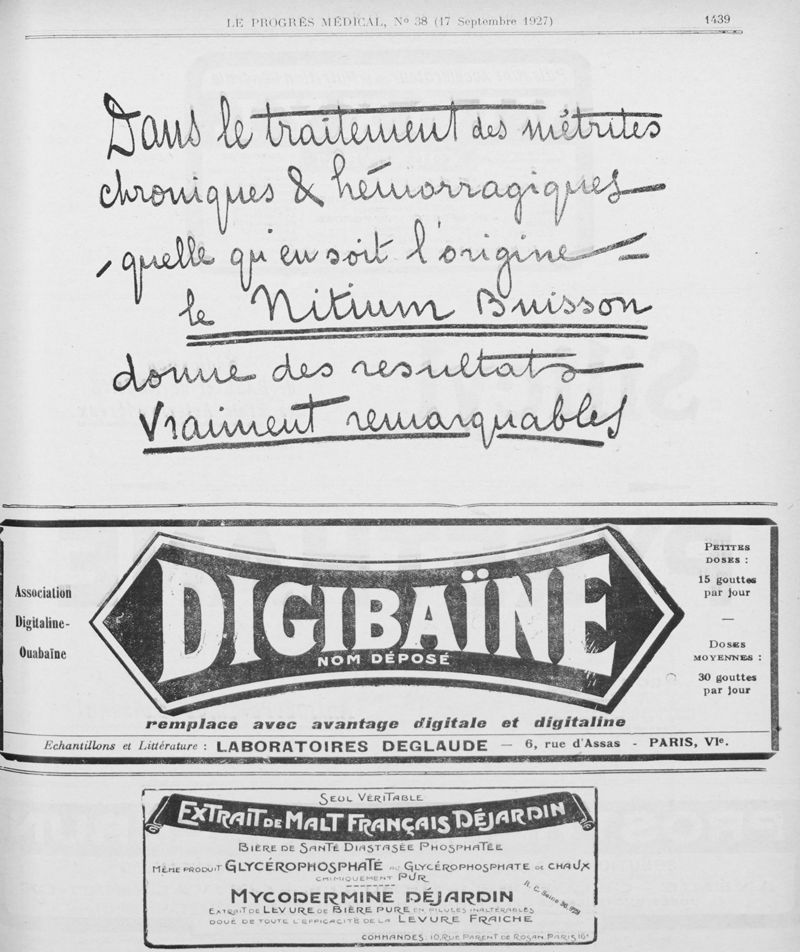 LE PROGRÈS MÉDICAL, No 38 (17 Septembre 1927)
1439
Dans le traitement des métrites
chroniques & hémorragiques
, quelle qu'en soit l'origine
le Nitium Buisson
donne des resultats
Vraiment remarquables
Association
Digitaline-
Ouabaïne
DIGIBAÏNE
NOM DÉPOSÉ
PETITES
DOSES :
15 gouttes
par jour
—
DOSES
MOYENNES :
30 gouttes
par jour
remplace avec avantage digitale et digitaline
Echantillons et Littérature : LABORATOIRES DEGLAUDE — 6, rue d'Assas - PARIS, VIe.
SEUL VÉRITABLE
EXTRAIT DE MALT FRANÇAIS DÉJARDIN
BIÈRE DE SANTÉ DIASTASÉE PHOSPHATÉE
MÊME PRODUIT GLYCÉROPHOSPHATÉ AU GLYCÉROPHOSPHATE DE CHAUX
CHIMIQUEMENT PUR
MYCODERMINE DÉJARDIN
R. C. Seine
EXTRAIT DE LEVURE DE BIÈRE PURE EN PILULES INALTÉRABLES
DOUÉ DE TOUTE L'EFFICACITÉ DE LA LEVURE FRAICHE
COMMANDES 10, RUE PARENT DE ROSAN PARIS 16e